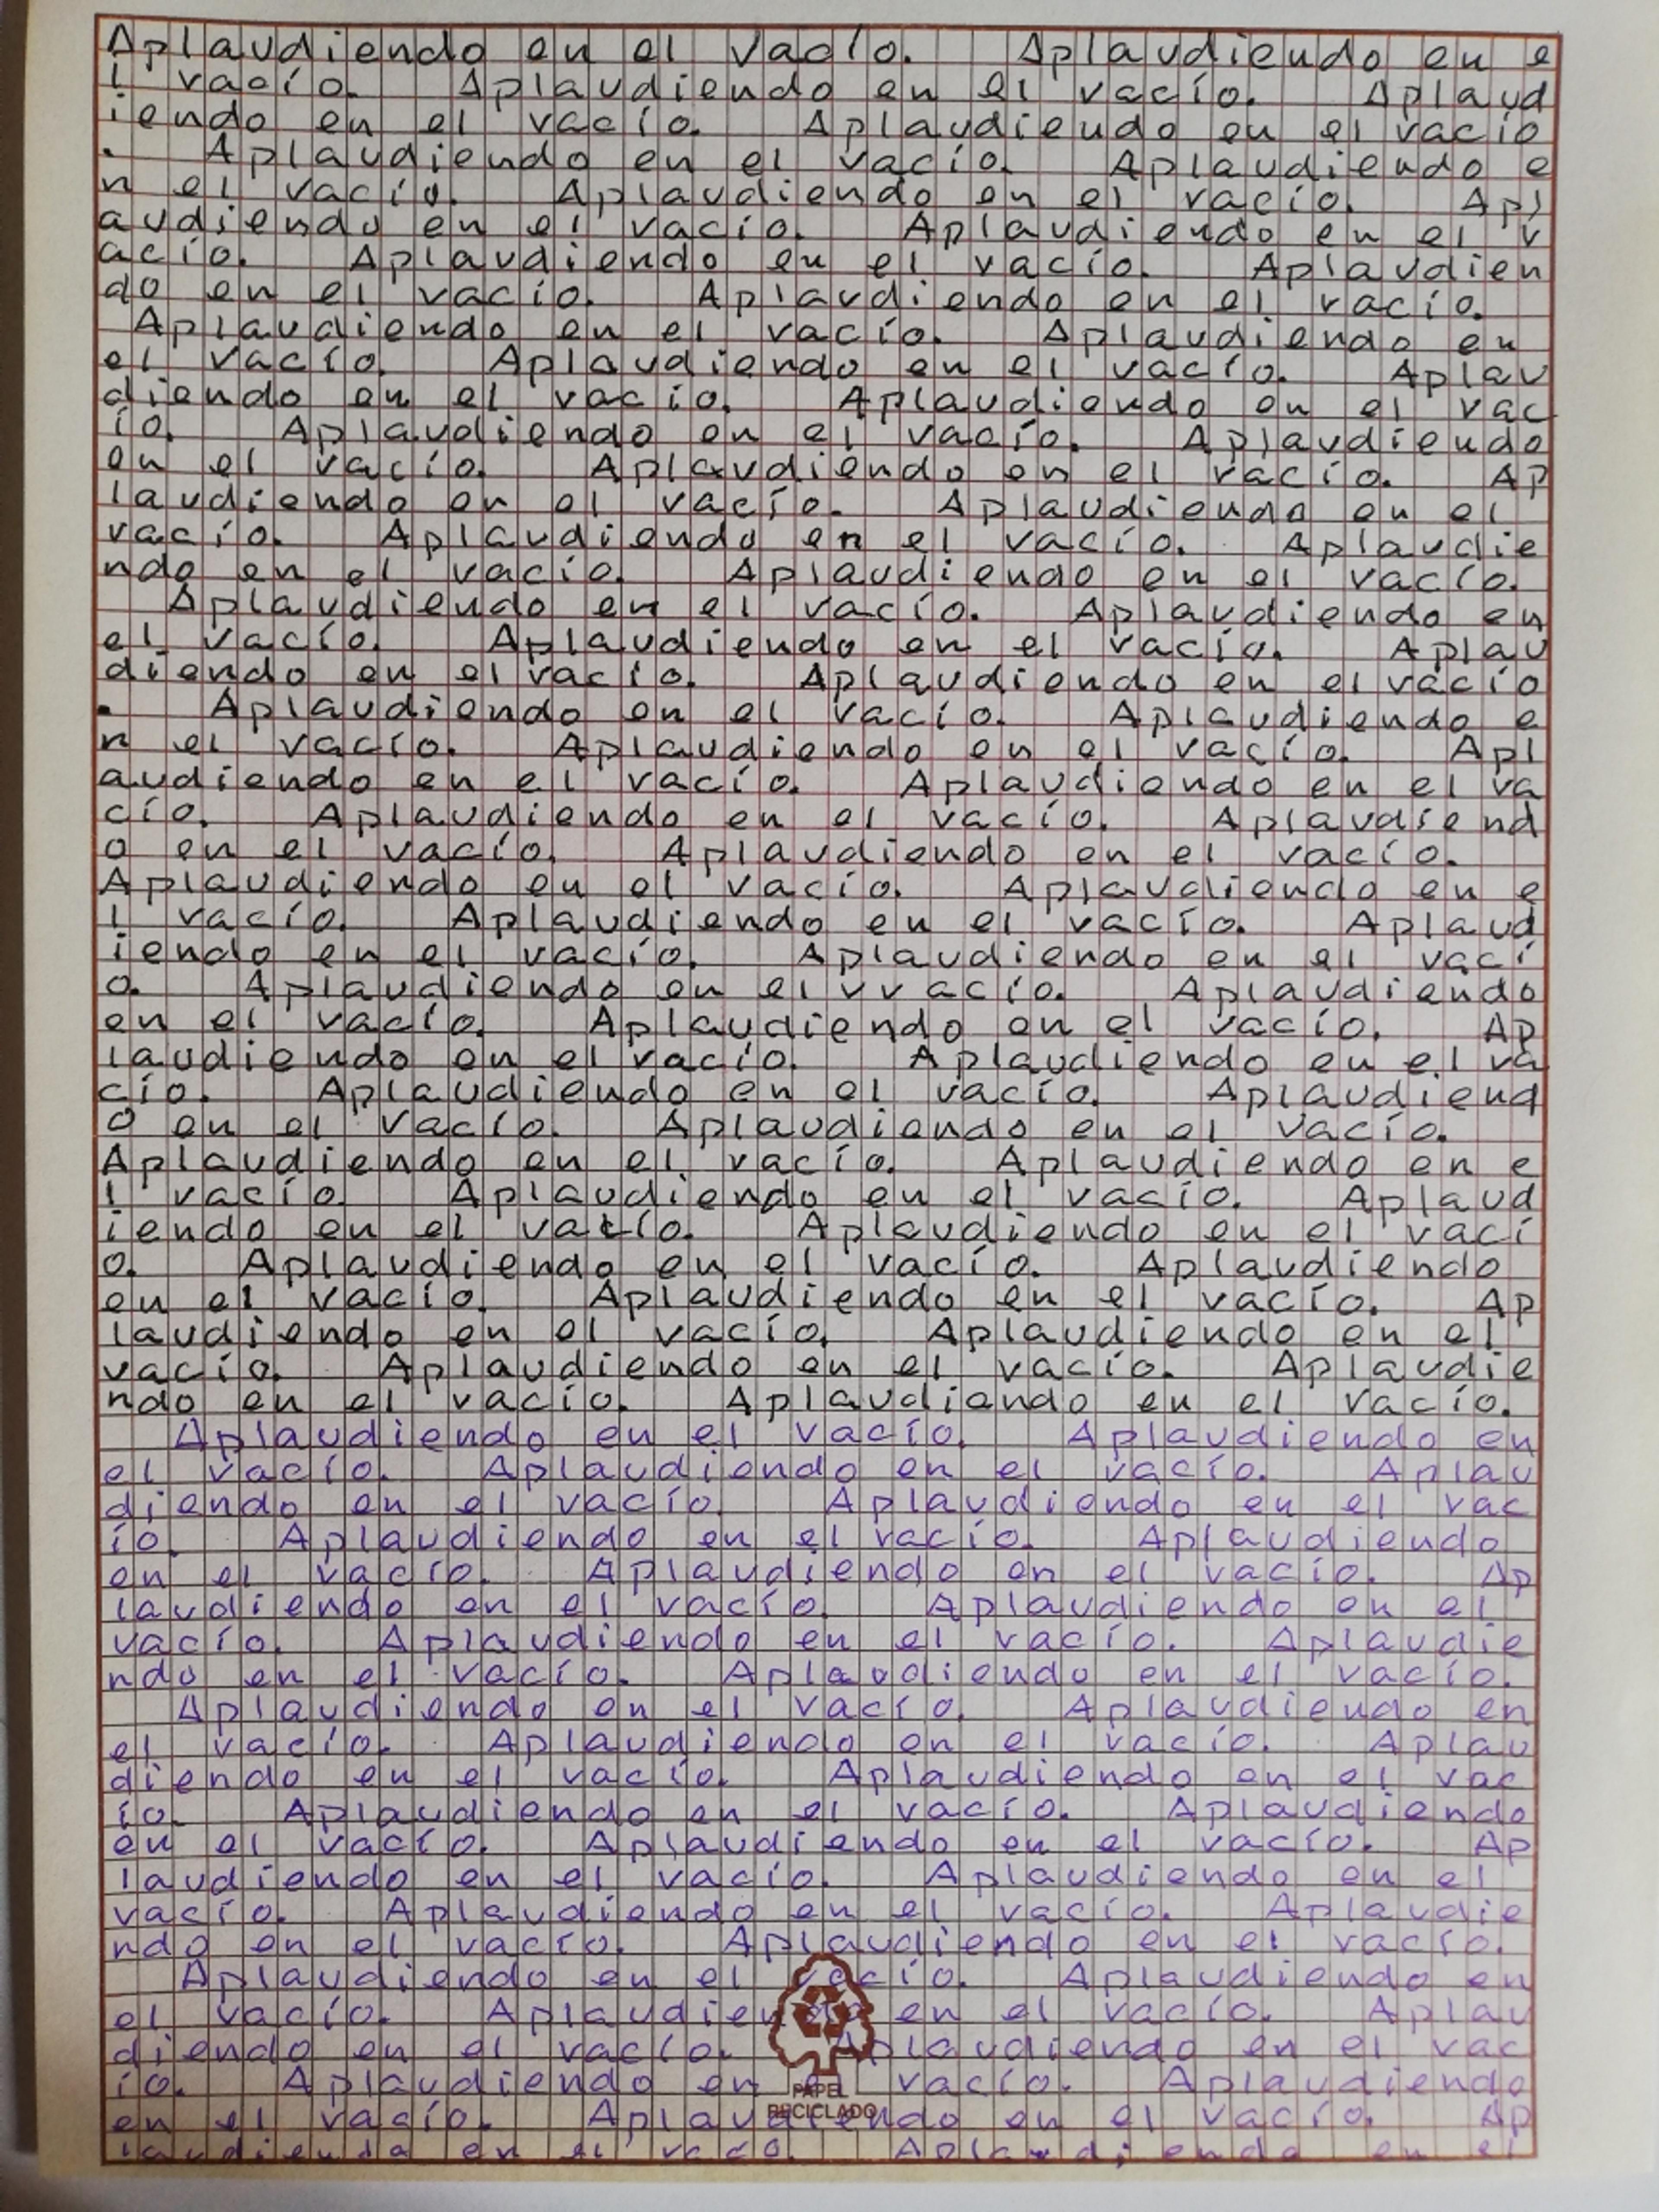 Aplaudiendo en el vacío.  Aplaudiendo en e
l vacío.  Aplaudiendo en el vacío.  Aplaud
iendo en el vacío.  Aplaudiendo en el vacío
.  Aplaudiendo en el vacío.  Aplaudiendo e
n el vacío.  Aplaudiendo en el vacío.  Apl
audiendo en el vacío.  Aplaudiendo en el v
acío.  Aplaudiendo en el vacío.  Aplaudien
do en el vacío.  Aplaudiendo en el vacío.
Aplaudiendo en el vacío.  Aplaudiendo en
el vacío.  Aplaudiendo en el vacío.  Aplau
diendo en el vacío.  Aplaudiendo en el vac
ío.  Aplaudiendo en el vacío.  Aplaudiendo
en el vacío.  Aplaudiendo en el vacío.  Ap
laudiendo en el vacío.  Aplaudiendo en el
vacío.  Aplaudiendo en el vacío.  Aplaudie
ndo en el vacío.  Aplaudiendo en el vacío.
Aplaudiendo en el vacío.  Aplaudiendo en
el vacío.  Aplaudiendo en el vacío.  Aplau
diendo en el vacío.  Aplaudiendo en el vacío
.  Aplaudiendo en el vacío.  Aplaudiendo e
n el vacío.  Aplaudiendo en el vacío.  Apl
audiendo en el vacío.  Aplaudiendo en el va
cío.  Aplaudiendo en el vacío.  Aplaudiend
o en el vacío.  Aplaudiendo en el vacío.
Aplaudiendo en el vacío.  Aplaudiendo en e
l vacío.  Aplaudiendo en el vacío.  Aplaud
iendo en el vacío.  Aplaudiendo en el vací
o.  Aplaudiendo en el vvacío.  Aplaudiendo
en el vacío.  Aplaudiendo en el vacío.  Ap
laudiendo en el vacío.  Aplaudiendo en el va
cío.  Aplaudiendo en el vacío.  Aplaudiend
o en el vacío.  Aplaudiendo en el vacío.
Aplaudiendo en el vacío.  Aplaudiendo en e
l vacío.  Aplaudiendo en el vacío.  Aplaud
iendo en el vacío.  Aplaudiendo en el vací
o.  Aplaudiendo en el vacío.  Aplaudiendo
en el vacío.  Aplaudiendo en el vacío.  Ap
laudiendo en el vacío.  Aplaudiendo en el
vacío.  Aplaudiendo en el vacío.  Aplaudie
ndo en el vacío.  Aplaudiendo en el vacío.
Aplaudiendo en el vacío.  Aplaudiendo en
el vacío.  Aplaudiendo en el vacío.  Aplau
diendo en el vacío.  Aplaudiendo en el vac
ío.  Aplaudiendo en el vacío.  Aplaudiendo
en el vacío.  Aplaudiendo en el vacío.  Ap
laudiendo en el vacío.  Aplaudiendo en el
vacío.  Aplaudiendo en el vacío.  Aplaudie
ndo en el vacío.  Aplaudiendo en el vacío.
Aplaudiendo en el vacío.  Aplaudiendo en
el vacío.  Aplaudiendo en el vacío.  Aplau
diendo en el vacío.  Aplaudiendo en el vac
ío.  Aplaudiendo en el vacío.  Aplaudiendo
en el vacío.  Aplaudiendo en el vacío.  Ap
laudiendo en el vacío.  Aplaudiendo en el
vacío.  Aplaudiendo en el vacío.  Aplaudie
ndo en el vacío.  Aplaudiendo en el vacío.
Aplaudiendo en el vacío.  Aplaudiendo en
el vacío.  Aplaudiendo en el vacío.  Aplau
diendo en el vacío.  Aplaudiendo en el vac
ío.  Aplaudiendo en el vacío.  Aplaudiendo
PAPEL
RECICLADO
en el vacío.  Aplaudiendo en el vacío.  Ap
laudiendo en el vacío.  Aplaudiendo en el